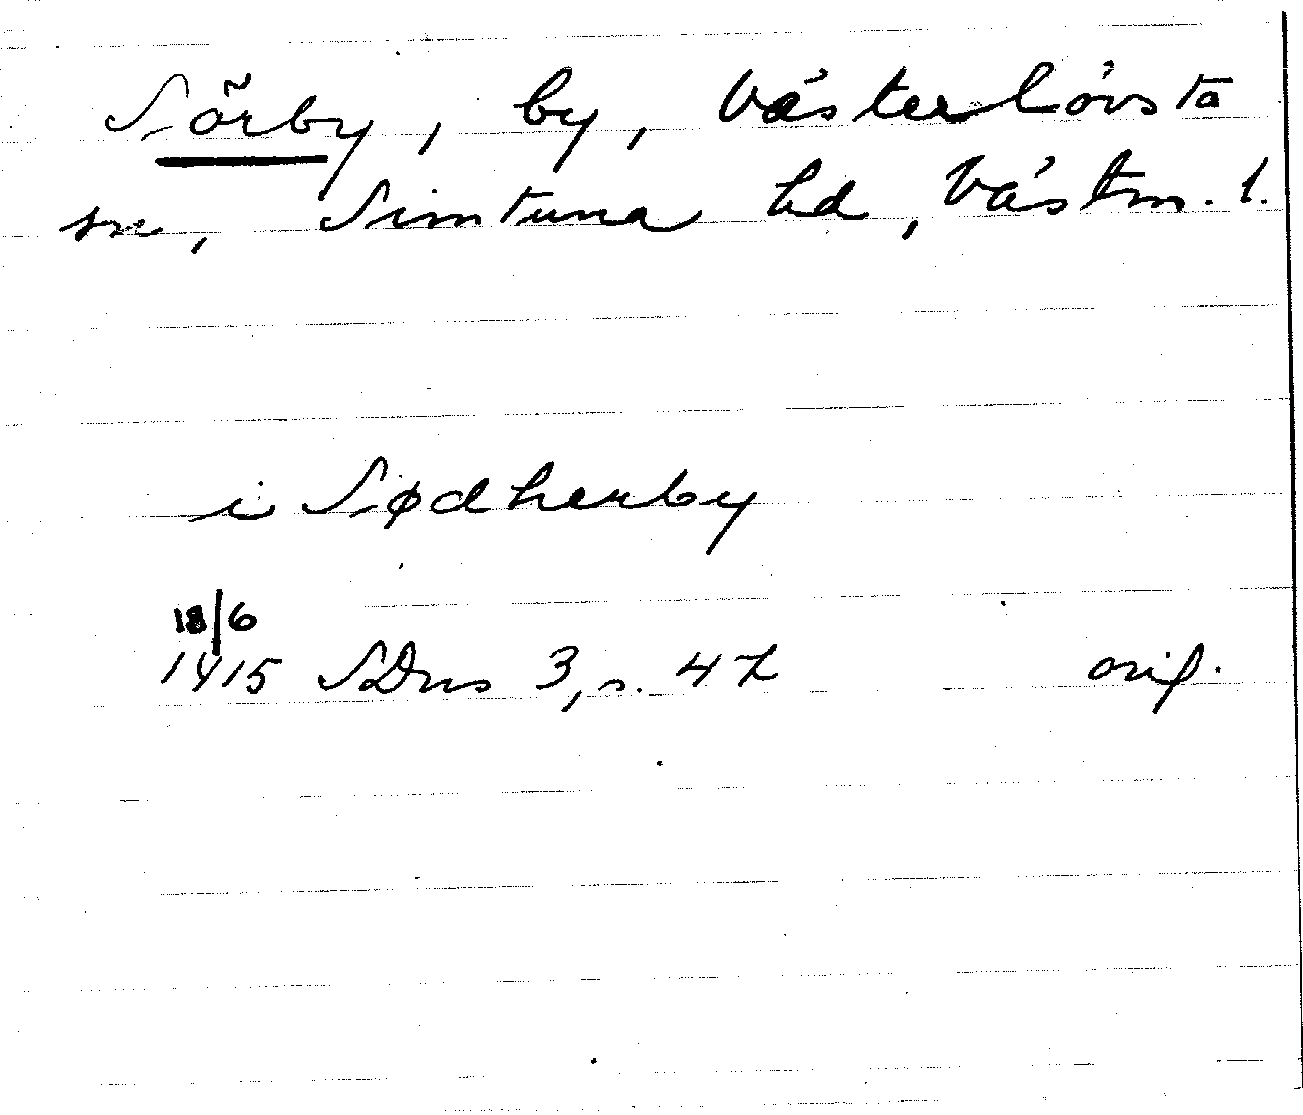 Sörby, by, Västerlövsta
sn, Simtuna hd, Västm. l.
i Sødherby
18/6
1415 SDns 3, s. 47 orig.